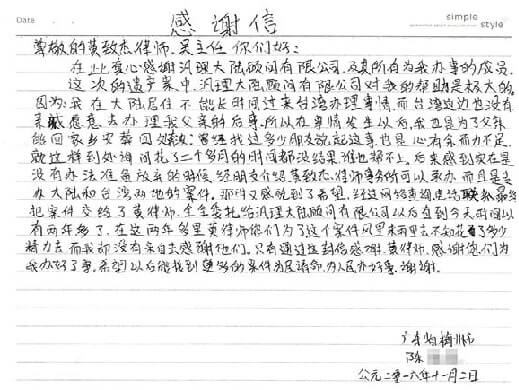 Date
simple
style
感谢信
尊敬的黄致杰律师、吴主任 你们好：
在此衷心感谢汎理大陆顾问有限公司，及其所有为我办事的成员。
这次的遗产案中，汎理大陆顾问有限公司对我的帮助是极大的
因为我在大陆居住不能长时间过来台湾办理事情，而台湾这边也没有
亲戚愿意去办理我父亲的后事，所以在事情发生以后，我也是为了父亲
能回家乡安葬 曾经我过多少朋友说起这事也是心有余而力不足
就这样到处询问托了二个多月的时间都没结果谁也帮不上，后来感到实在是
没有办法准备放弃的时候，经朋友介绍黄致杰律师事务所可以承办 而且是专
办大陆和台湾两地的案件。那件又感觉到了希望，经过网络查询电话联系最终
把案件交给了黄律师，全全委托给汎理大陆顾问有限公司以后直到今天时间以
有两年多了，在这两年多里黄律师你们为了这个案件风里来雨里去不知花了多少
精力去 而我却没有亲自去感谢他们。只有通过这封信感谢，黄律师，感谢您们为
我办好了事，希望以后能找到更多的案件为民请命，为人民办好事，谢谢。
广东省梅州市
陈
公元二零一六年十一月二日